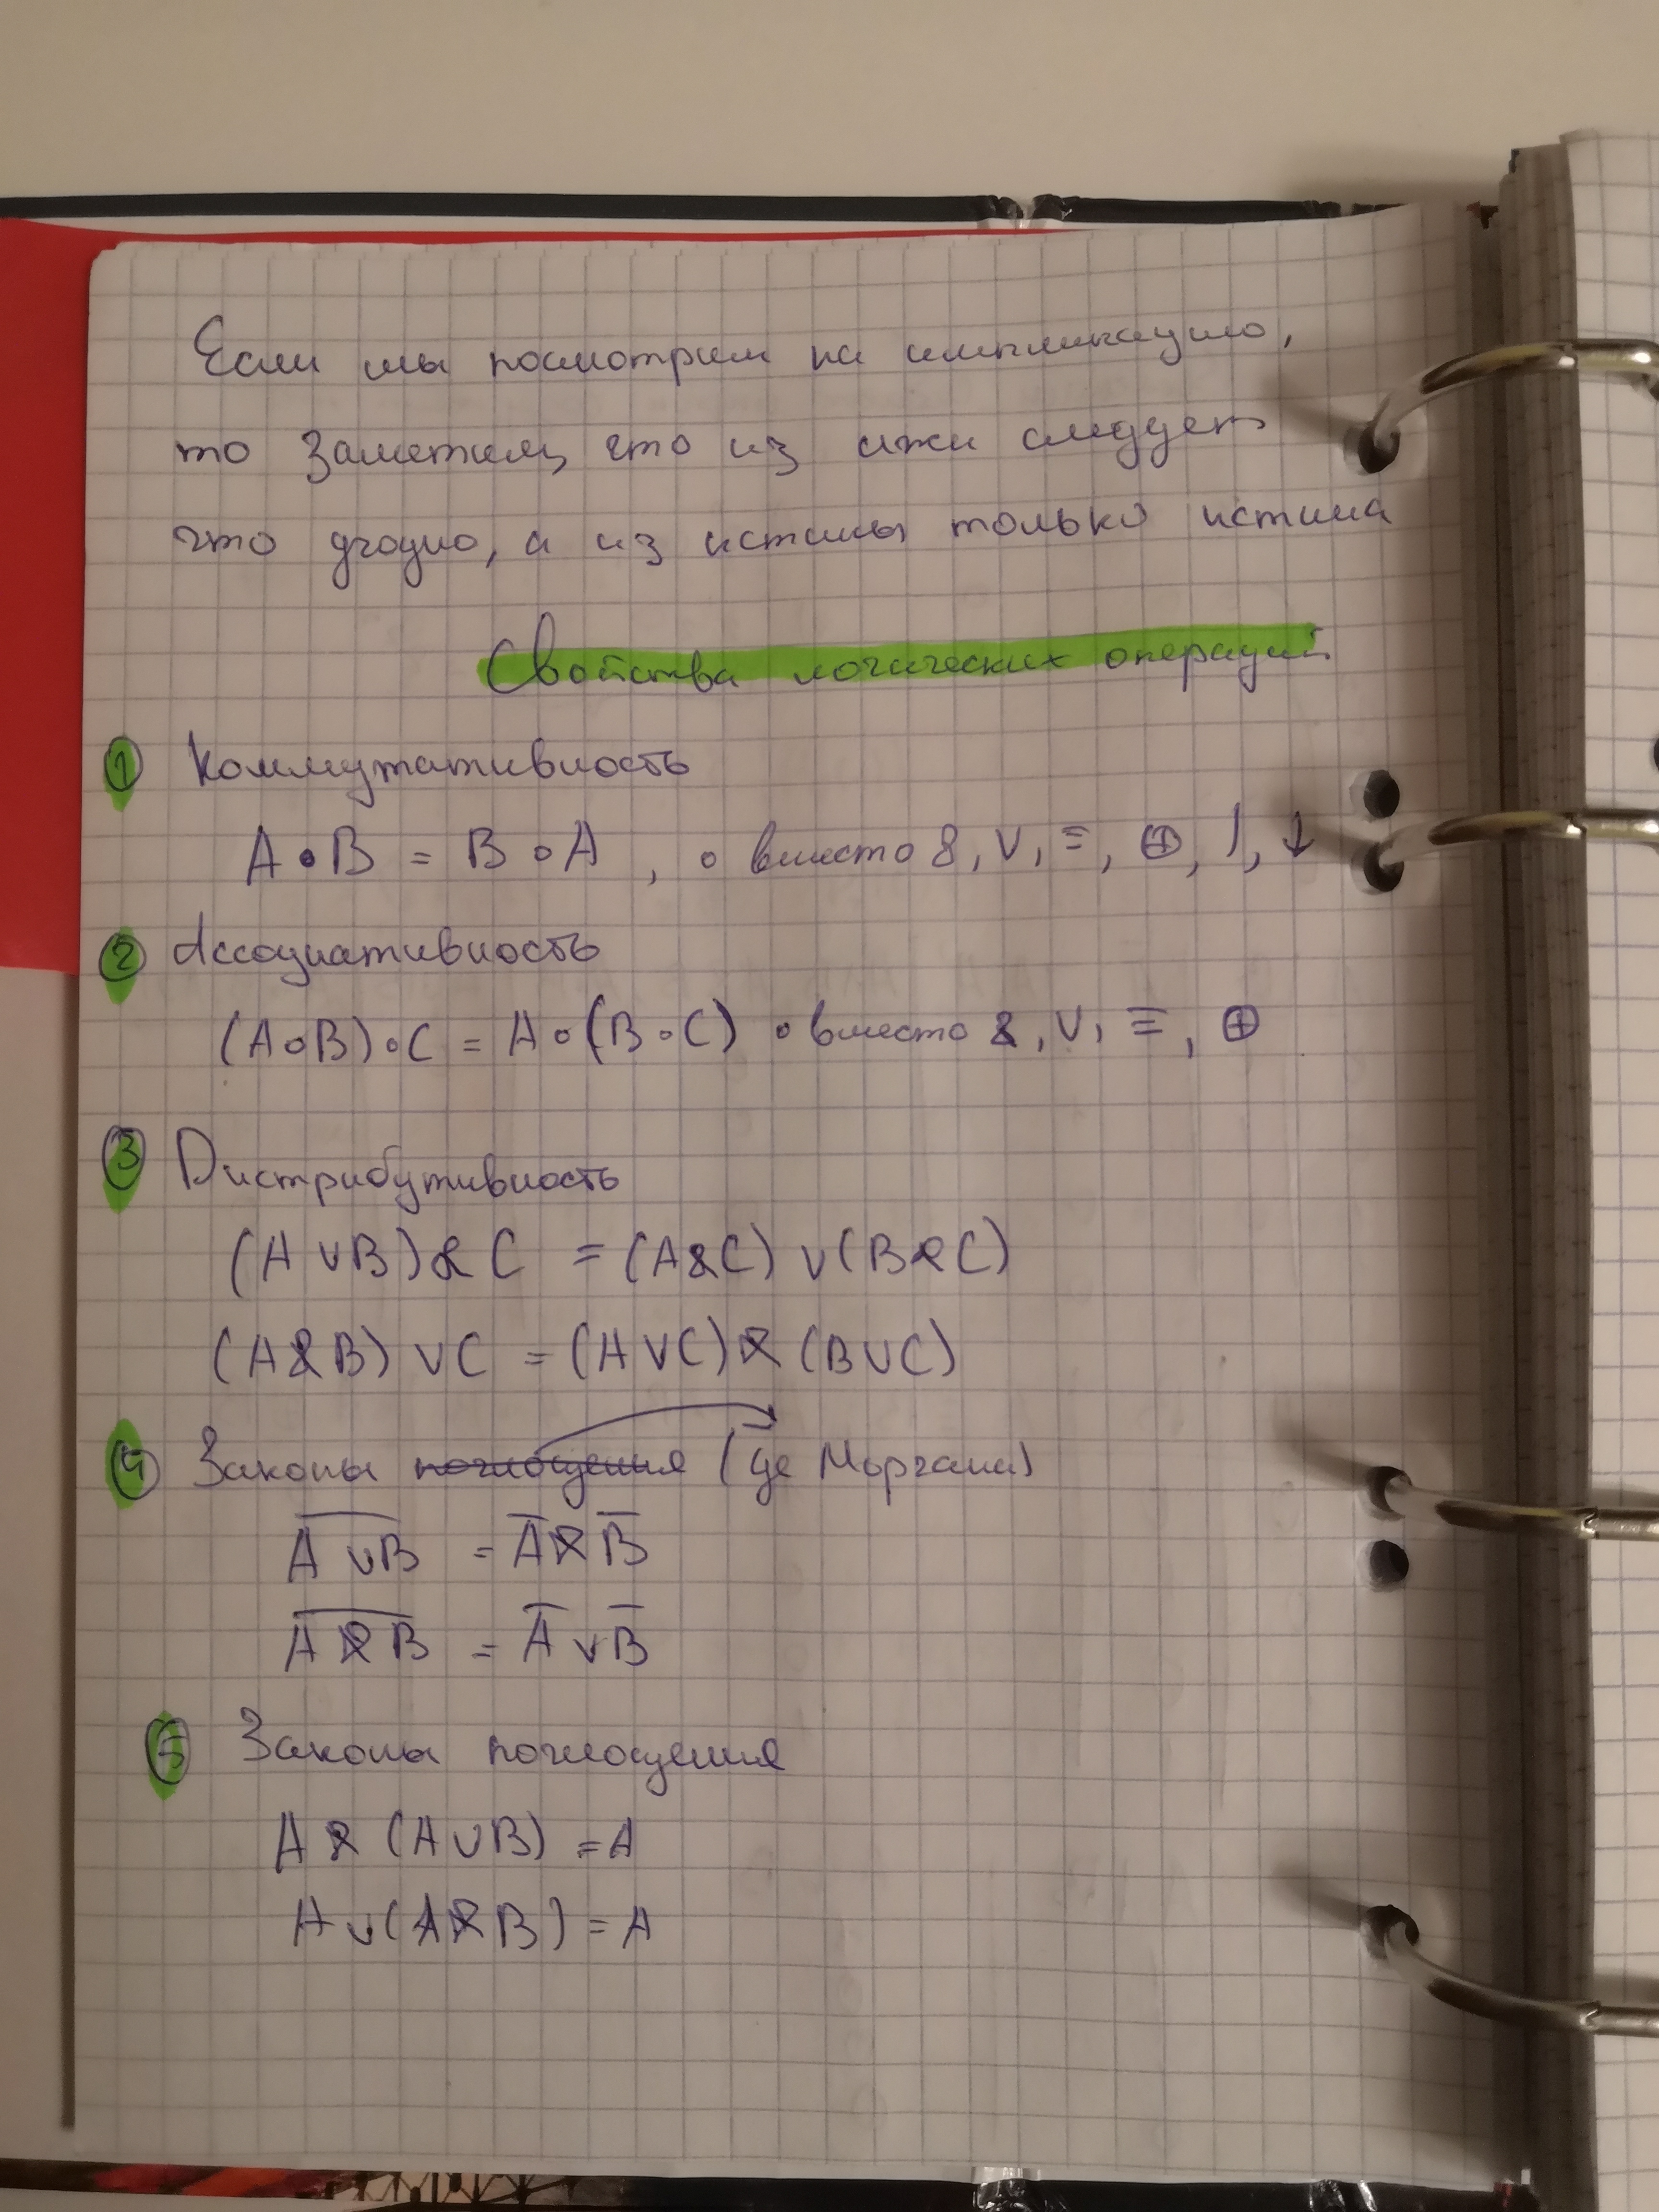 Если мы посмотрим на импликацию,
то заметим, что из лжи следует
что угодно, а из истины только истина
Свойства логических операций
① Коммутативность
A∘B = B∘A , ∘ вместо &, ∨, ≡, ⊕, |, ↓
② Ассоциативность
(A∘B)∘C = A∘(B∘C) ∘ вместо &, ∨, ≡, ⊕
③ Дистрибутивность
(A∨B)&C = (A&C)∨(B&C)
(A&B)∨C = (A∨C)&(B∨C)
④ Законы поглощения (де Моргана)
A̅ ̅∨̅ ̅B̅ = A̅&B̅
A̅ ̅&̅ ̅B̅ = A̅∨B̅
⑤ Законы поглощения
A&(A∨B) = A
A∨(A&B) = A